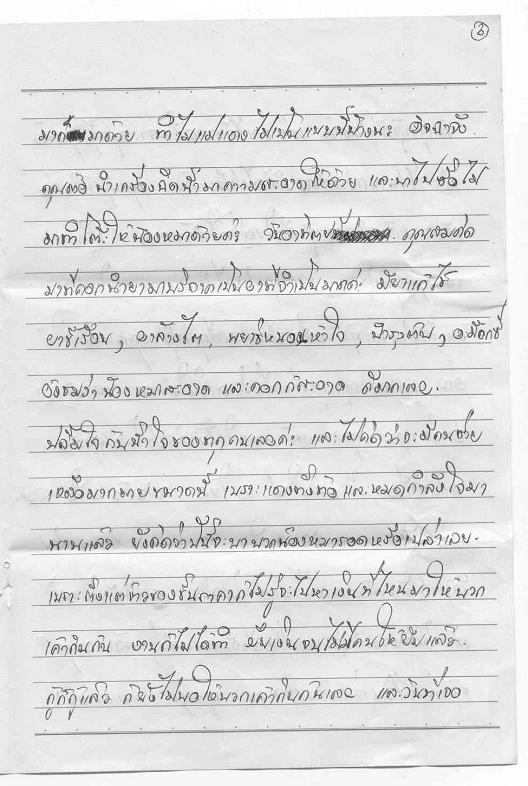 3
มาด้วย ทำไมแม่แดงไม่เป็นแบบนี้บ้างนะ อิจฉาจัง
คุณต๋อ นำเครื่องฉีดน้ำมาความสะอาดให้ด้วย และพาไปซื้อไม้
มาทำโต๊ะให้น้องหมาด้วยค่ะ วันอาทิตย์ คุณสมคิด
มาที่คอกนำยามาบริจาคเป็นยาที่จำเป็นมากค่ะ มียาแก้ไข้
ยาขี้เรื้อน, ยาล้างไต, พยาธิหนอนหัวใจ, บำรุงตับ, อะม๊อกซี่
ยังชมว่าน้องหมาสะอาด และคอกก็สะอาด ดีมากเลย.
ปลื้มใจกับน้ำใจของทุกคนเลยค่ะ และไม่คิดว่าจะมีคนช่วย
เหลือมากมายขนาดนี้ เพราะแดงทั้งท้อและหมดกำลังใจมา
นานแล้ว ยังคิดว่าปีนี้จะพาพวกน้องหมารอดหรือเปล่าเลย.
เพราะตั้งแต่ข้าวของขึ้นราคาก็ไม่รู้จะไปหาเงินที่ไหนมาให้พวก
เค้ากินกัน งานก็ไม่ได้ทำ ยืมเงินจนไม่มีคนให้ยืมแล้ว.
กู้ก็กู้แล้ว ก็ยังไม่พอให้พวกเค้ากินกันเลย และวันที่เจอ